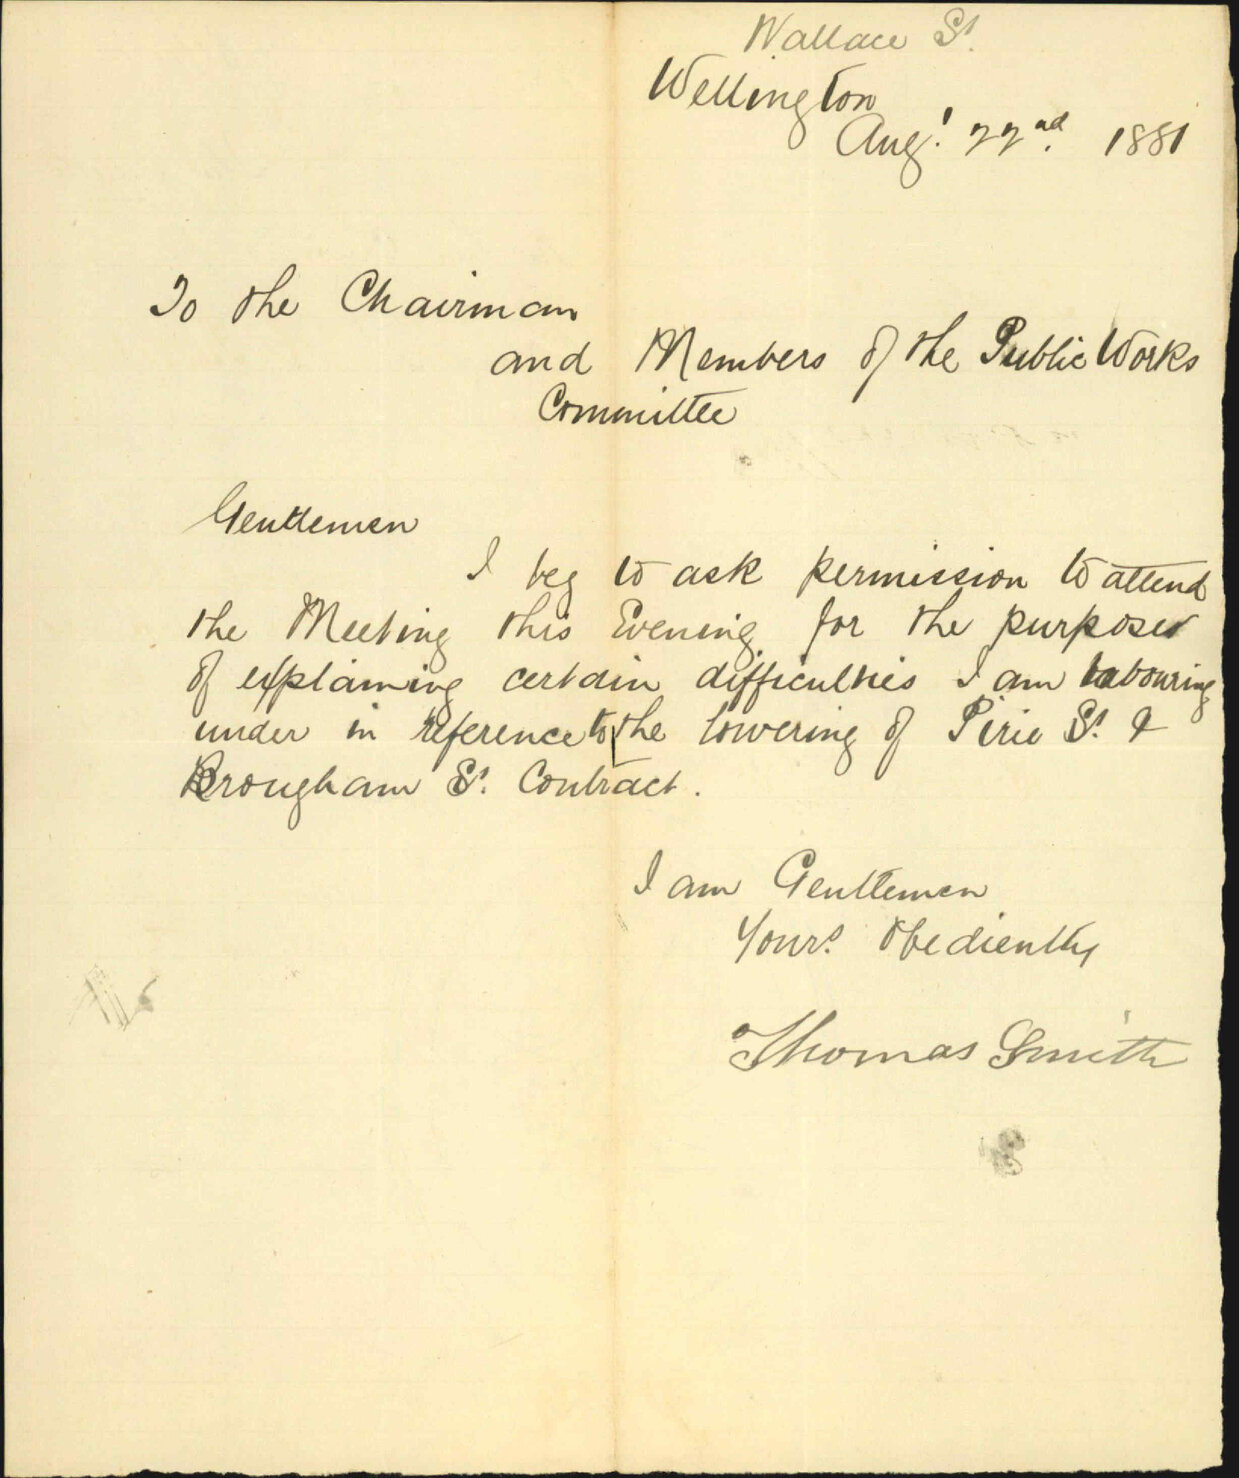 Wallace St.
Wellington
Augt. 22nd. 1881
To the Chairman
and Members of the Public Works
Committee
Gentlemen
I beg to ask permission to attend
the Meeting this Evening for the purposes
of explaining certain difficulties I am labouring
under in reference to the lowering of Pirie St. &
Brougham St. Contract.
I am Gentlemen
Yours. Obediently
Thomas Smith